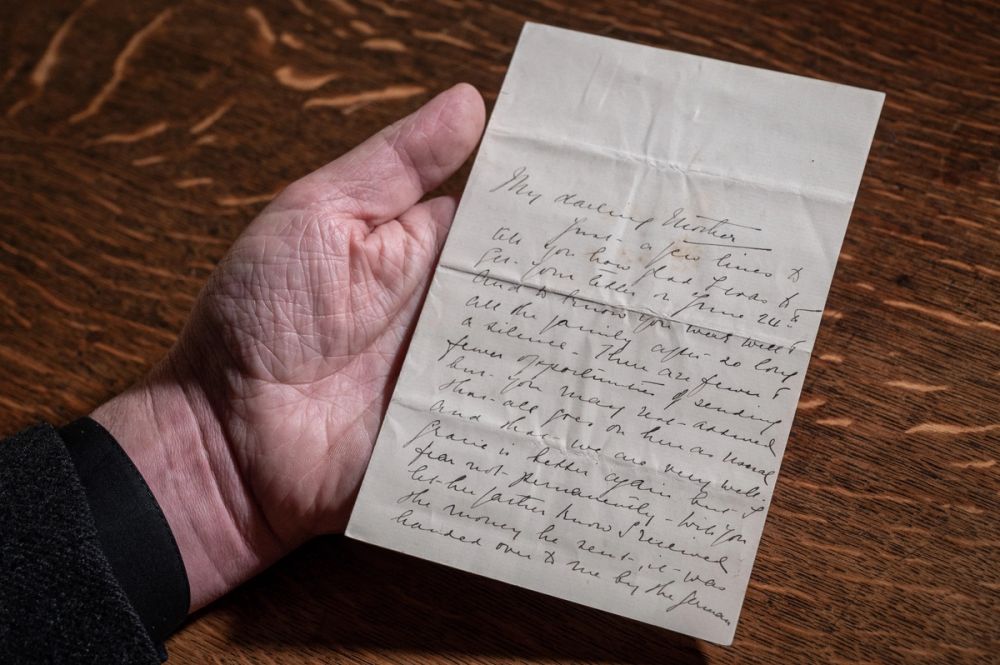 My darling Mother
Just a few lines to
tell you how glad I was to
get your letter of June 24th
and to know you were well &
all the family after so long
a silence. There are fewer &
fewer opportunities of sending
but you may rest assured
that all goes on here as usual
and that we are very well.
Gracie is better again but I
fear not permanently - will you
let her father know I received
the money he sent, it was
handed over to me by the German